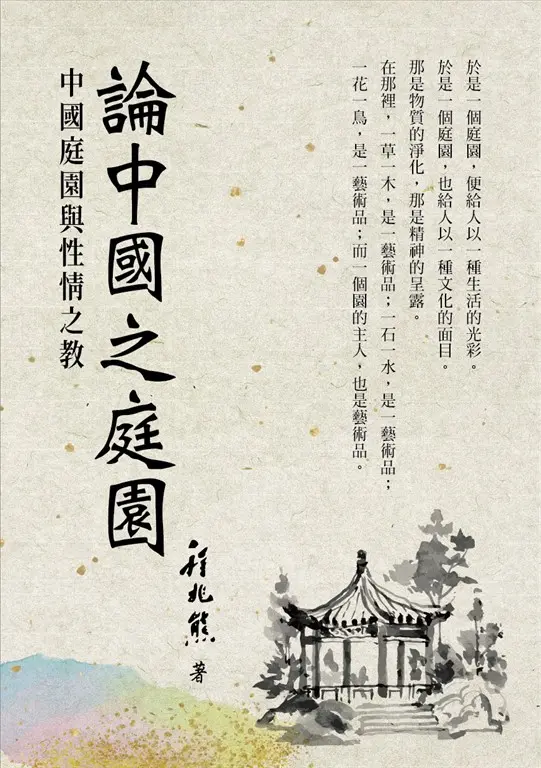 於是一個庭園，便給人以一種生活的光彩。
於是一個庭園，也給人以一種文化的面目。
那是物質的淨化，那是精神的呈露。
在那裡，一草一木，是一藝術品；一石一水，是一藝術品；
一花一鳥，是一藝術品；而一個園的主人，也是藝術品。
論中國之庭園
中國庭園與性情之教
程兆熊 著